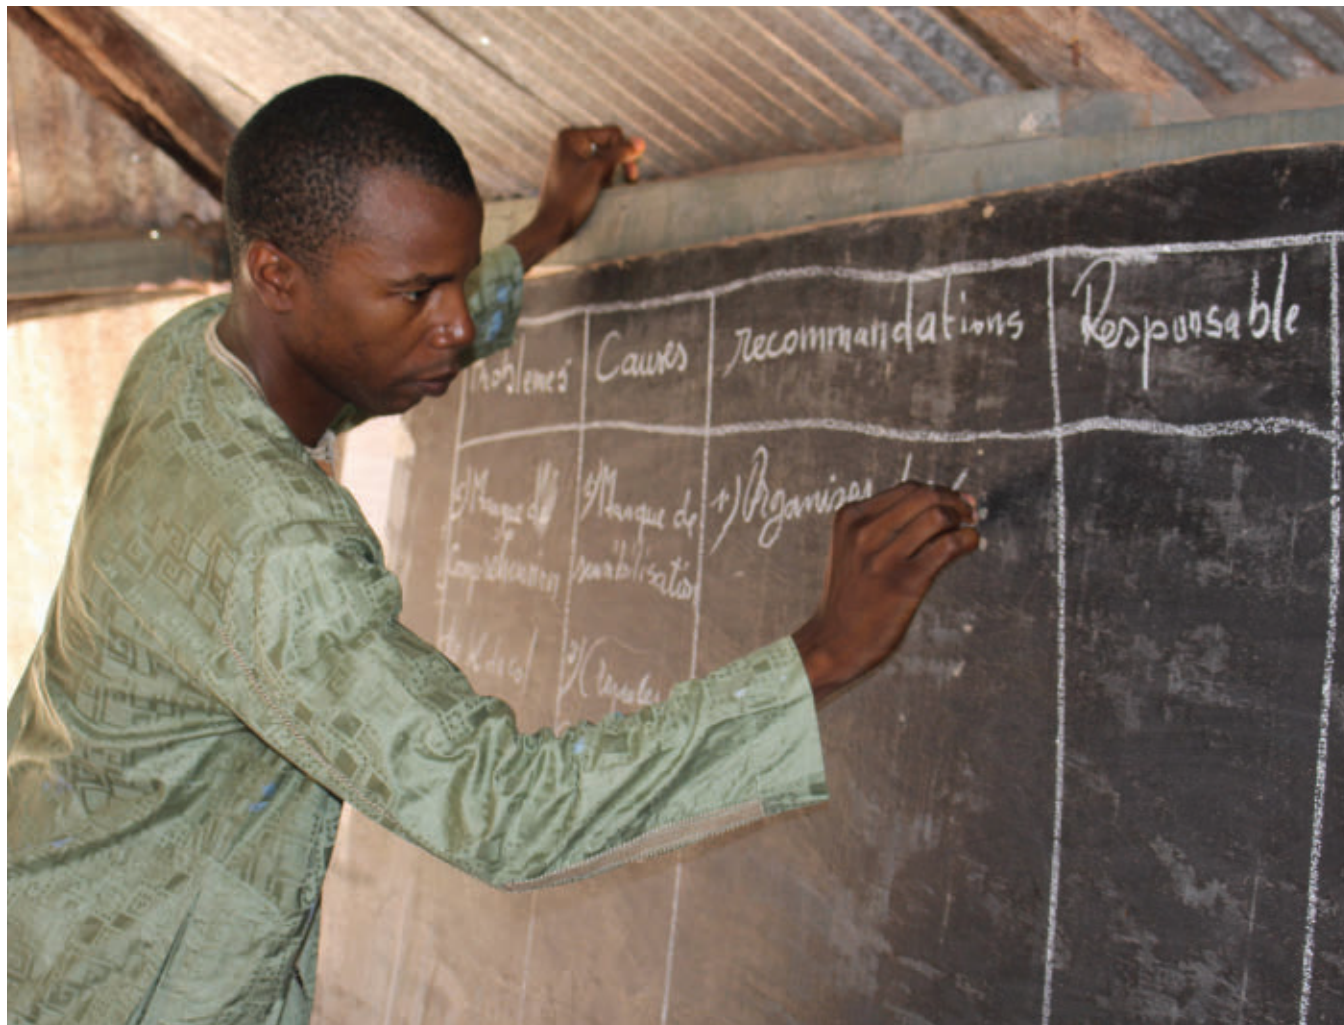 Problemes Causes recommandations Responsable
Manque de
Compréhension
1) Manque de
sensibilisation
2)
1) Organiser